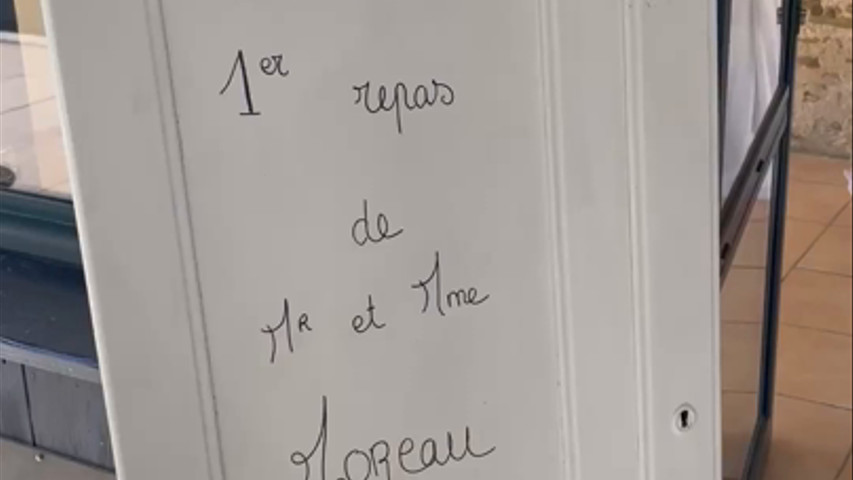 1er repas
de
Mr et Mme
Moreau